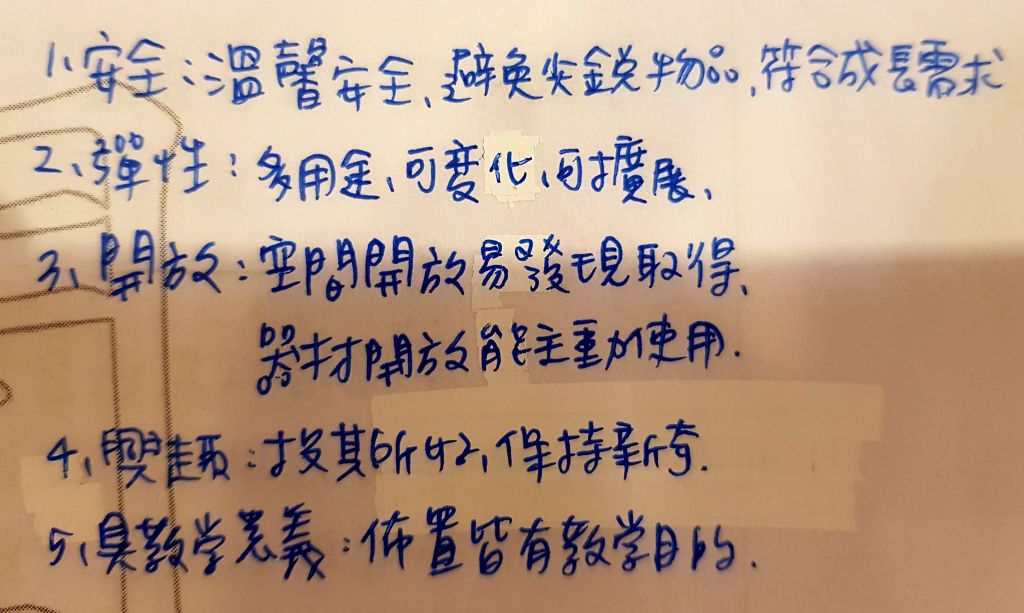 1、安全：溫馨安全、避免尖銳物品，符合成長需求
2、彈性：多用途、可變化、可擴展、
3、開放：空間開放易發現取得、
器材開放能主動使用.
4、興趣：投其所好，保持新奇.
5、具教学意義：佈置皆有教学目的.